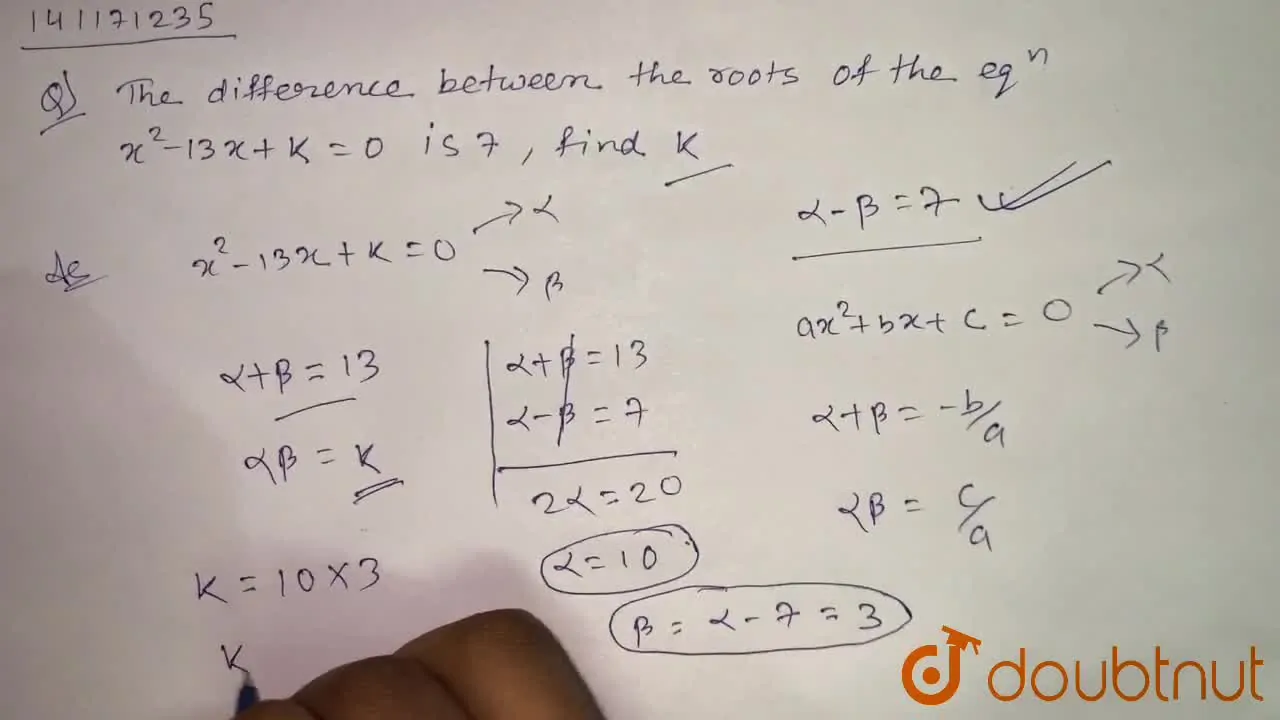 141171235
Q) The difference between the roots of the eqⁿ
x²-13x+K=0 is 7, find K
As x²-13x+K=0 → α
→ β
α-β=7
ax²+bx+c=0 → α
→ β
α+β=13
αβ=K
α+β=13
α-β=7
2α=20
α=10
β=α-7=3
α+β=-b/a
αβ=c/a
K=10×3
K
doubtnut